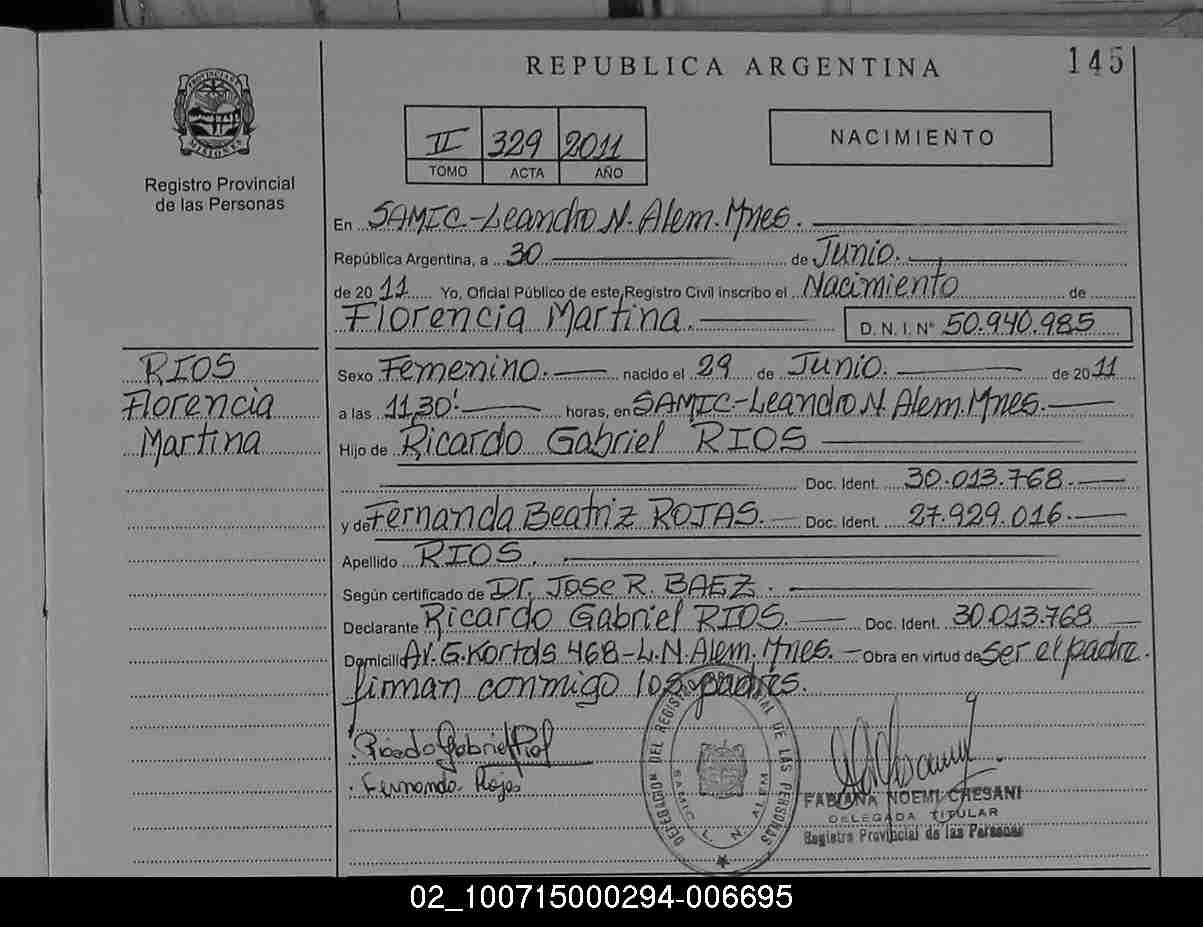 REPUBLICA ARGENTINA
145
PROVINCIA DE
MISIONES
Registro Provincial
de las Personas
II 329 2011
TOMO ACTA AÑO
NACIMIENTO
En SAMIC-Leandro N. Alem. Mnes.
República Argentina, a 30 de Junio.
de 2011 Yo, Oficial Público de este Registro Civil inscribo el Nacimiento de
Florencia Martina. D. N. I. Nº 50.940.985
RIOS
Florencia
Martina
Sexo Femenino. nacido el 29 de Junio. de 2011
a las 11,30' horas, en SAMIC-Leandro N. Alem. Mnes.
Hijo de Ricardo Gabriel RIOS
Doc. Ident. 30.013.768.
y de Fernanda Beatriz ROJAS. Doc. Ident. 27.929.016.
Apellido RIOS.
Según certificado de Dr. Jose R. BAEZ.
Declarante Ricardo Gabriel RIOS. Doc. Ident. 30.013.768
Domicilio Av. G. Kortds 468-L.N. Alem, Mnes. Obra en virtud de ser el padre.
firman conmigo los padres.
Ricardo Gabriel Rios
Fernanda Rojas
DELEGACION DEL REGISTRO PROVINCIAL DE LAS PERSONAS
SAMIC L. N. ALEM
FABIANA NOEMI CHESANI
DELEGADA TITULAR
Registro Provincial de las Personas
02_100715000294-006695